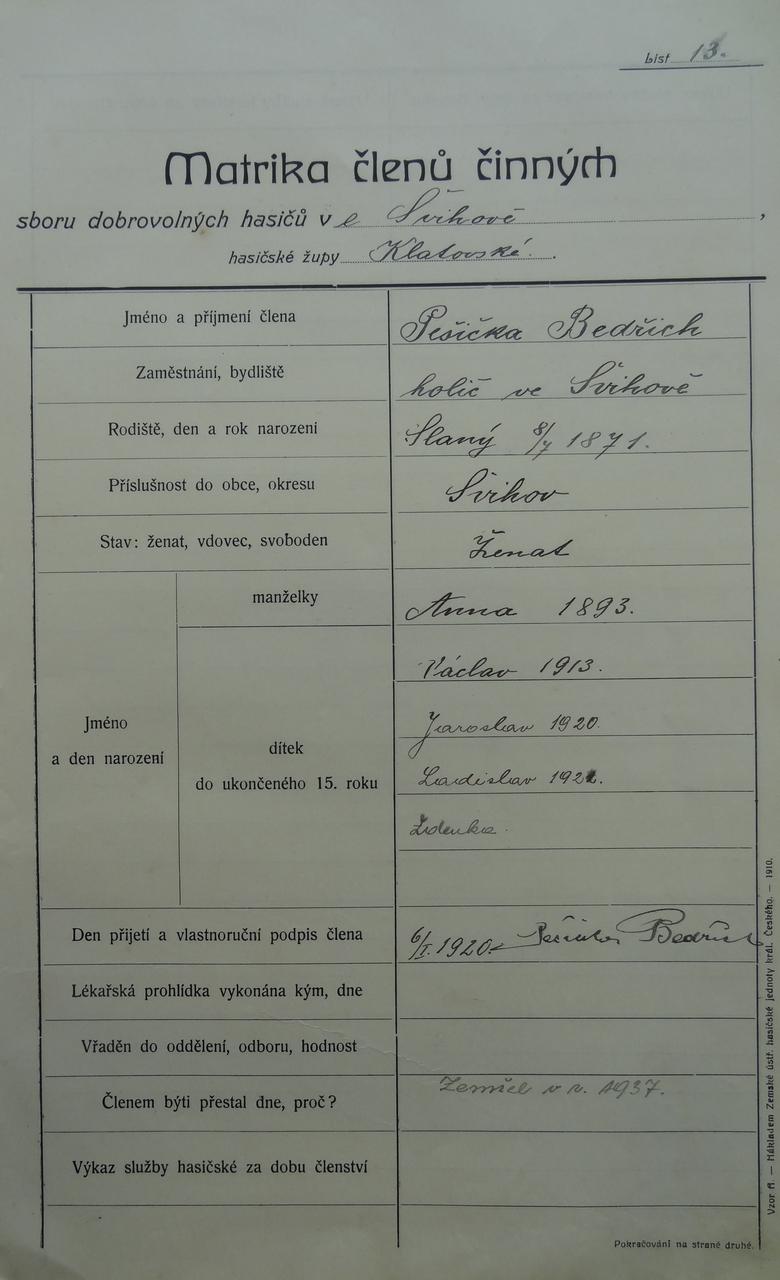 List 13.
Matrika členů činných
sboru dobrovolných hasičů v e Švihově ,
hasičské župy Klatovské.
Jméno a příjmení člena Pešička Bedřich
Zaměstnání, bydliště holič ve Švihově
Rodiště, den a rok narození Slaný 8/7 1871.
Příslušnost do obce, okresu Švihov
Stav: ženat, vdovec, svoboden Ženat
Jméno a den narození
manželky Anna 1893.
dítek do ukončeného 15. roku
Václav 1913.
Jaroslav 1920.
Ladislav 1921.
Zdenka.
Den přijetí a vlastnoruční podpis člena 6/I. 1920. Pešička Bedřich
Lékařská prohlídka vykonána kým, dne
Vřaděn do oddělení, odboru, hodnost
Členem býti přestal dne, proč? Zemřel v r. 1937.
Výkaz služby hasičské za dobu členství
Pokračování na straně druhé.
Vzor A. — Nákladem Zemské ústř. hasičské jednoty král. Českého. — 1910.